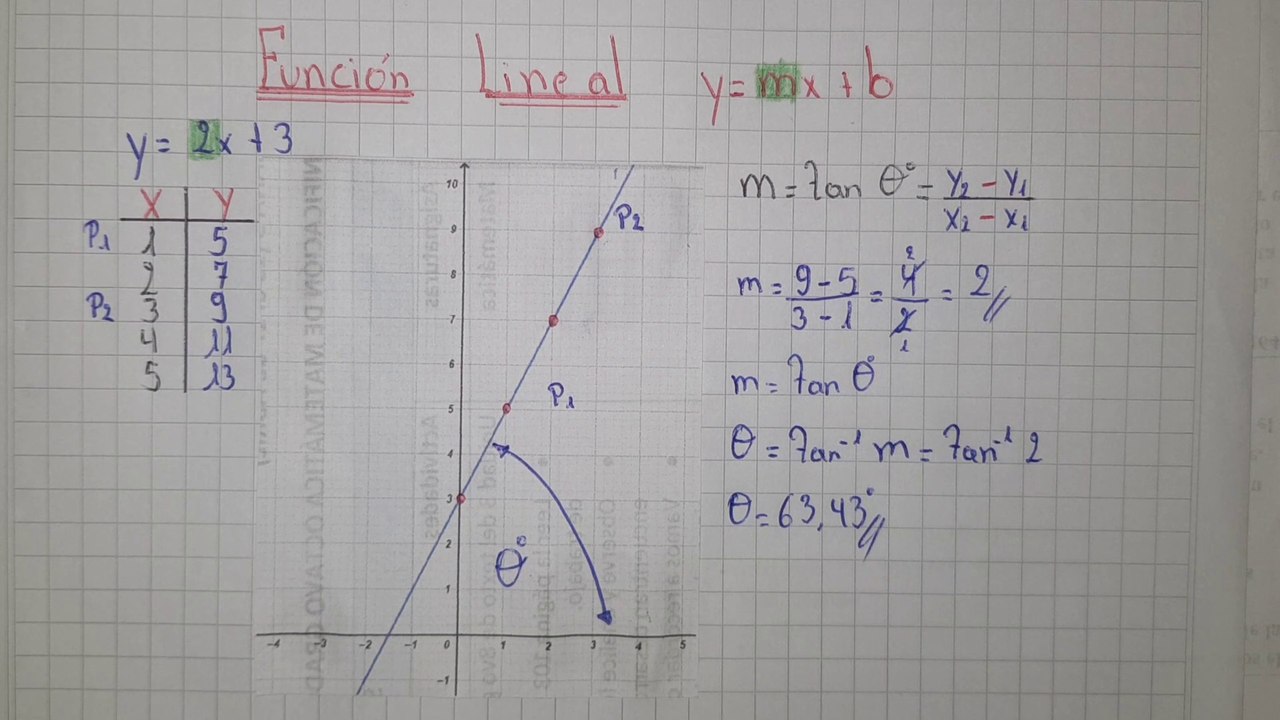 Función Lineal y = mx + b
y = 2x + 3
X Y
P1 1 5
2 7
P2 3 9
4 11
5 13
10
9
8
7
6
5
4
3
2
1
-4 -3 -2 -1 0 1 2 3 4 5
-1
P2
P1
θ°
m = Tan θ° = Y2 - Y1 / X2 - X1
m = 9 - 5 / 3 - 1 = 4 / 2 = 2 //
2
1
m = Tan θ°
θ = Tan⁻¹ m = Tan⁻¹ 2
θ = 63,43° //